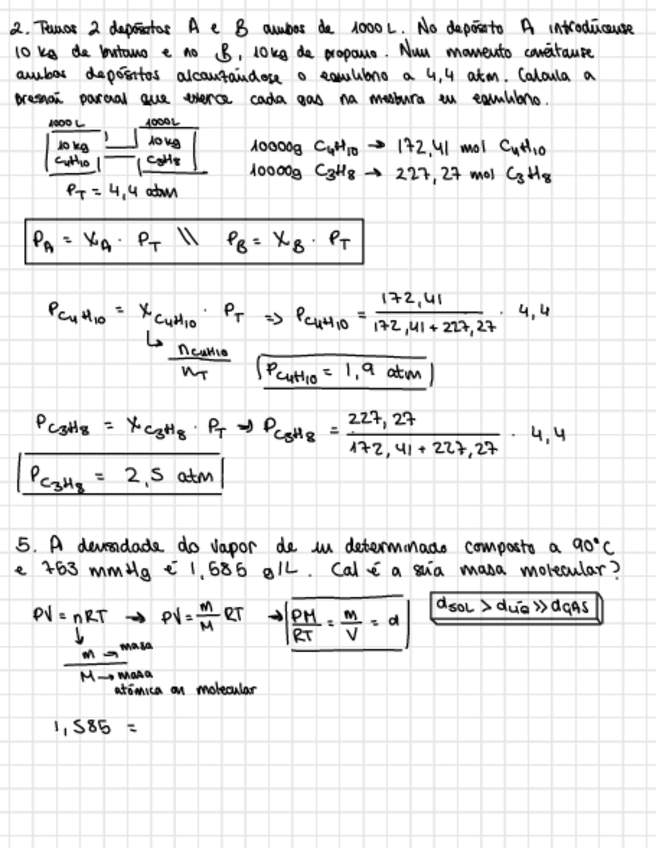 2. Temos 2 depósitos A e B ambos de 1000 L. No depósito A introdúcense
10 kg de butano e no B, 10 kg de propano. Nun momento conéctanse
ambos depósitos alcanzándose o equilibrio a 4,4 atm. Calcula a
presión parcial que exerce cada gas na mestura en equilibrio.
1000 L 1000L
10 kg C4H10 10 kg C3H8
PT = 4,4 atm
10000g C4H10 → 172,41 mol C4H10
10000g C3H8 → 227,27 mol C3H8
PA = XA · PT \\ PB = XB · PT
PC4H10 = XC4H10 · PT => PC4H10 = 172,41 / 172,41 + 227,27 · 4,4
↳ nC4H10 / nT
PC4H10 = 1,9 atm
PC3H8 = XC3H8 · PT => PC3H8 = 227,27 / 172,41 + 227,27 · 4,4
PC3H8 = 2,5 atm
5. A densidade do vapor de un determinado composto a 90°C
e 753 mmHg é 1,585 g/L. Cal é a súa masa molecular?
PV = nRT → PV = m/M RT → PM/RT = m/V = d
dSOL > dLIQ >> dGAS
↓
m → masa
M → masa
atómica ou molecular
1,585 =